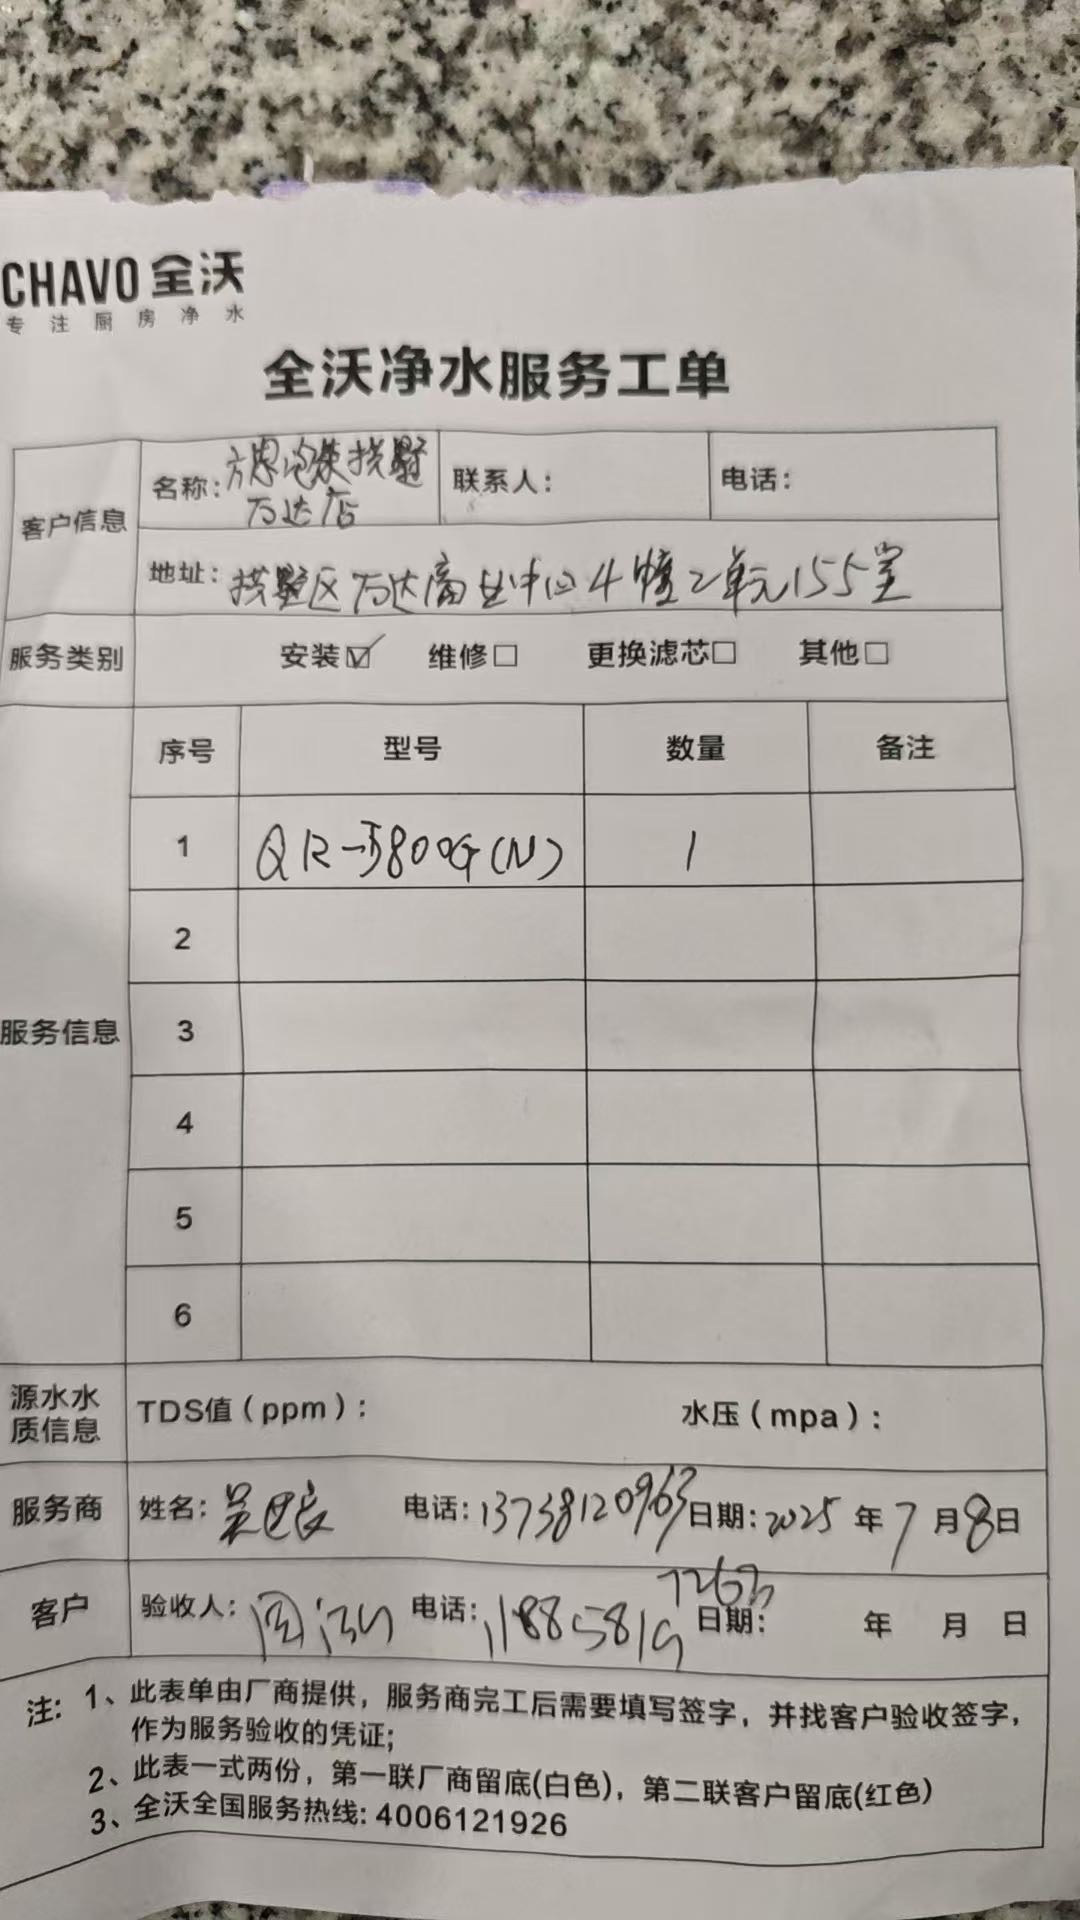 CHAVO 全沃
专注厨房净水
全沃净水服务工单
客户信息
名称: 拱墅
万达店
联系人:
电话:
地址: 拱墅区万达商业中心4幢2单元155室
服务类别 安装☑ 维修□ 更换滤芯□ 其他□
服务信息
序号 型号 数量 备注
1 800G(N) 1
2
3
4
5
6
源水水质信息 TDS值(ppm): 水压(mpa):
服务商 姓名: 吴 电话: 13738120963 日期: 2025年7月8日
客户 验收人: 电话: 日期: 年 月 日
注: 1、此表单由厂商提供，服务商完工后需要填写签字，并找客户验收签字，
作为服务验收的凭证;
2、此表一式两份，第一联厂商留底(白色)，第二联客户留底(红色)
3、全沃全国服务热线: 4006121926